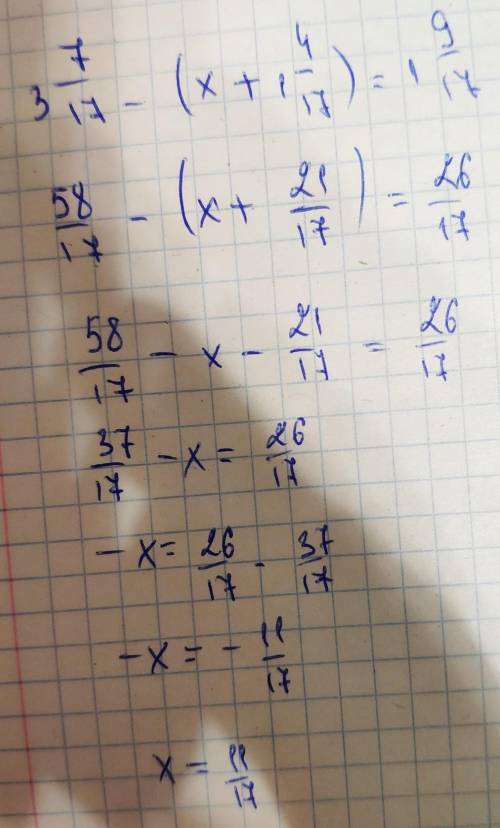 3 7/17 - (x + 1 4/17) = 1 9/17
58/17 - (x + 21/17) = 26/17
58/17 - x - 21/17 = 26/17
37/17 - x = 26/17
- x = 26/17 - 37/17
- x = - 11/17
x = 11/17